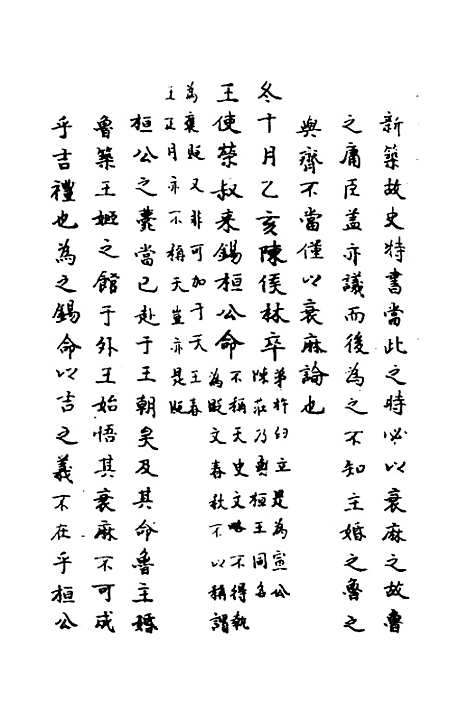 新築故史特書當此之時必以衰麻之故魯
之庸臣盖亦議而後為之不知主婚之魯之
與齊不當僅以衰麻論也
冬十月乙亥陳侯林卒弟杵臼立是為宣公
陳莊乃與桓王同名
王使榮叔来錫桓公命不稱天史文略不得執
為貶文春秋不以稱謂
為褒貶又非可加于天王春
王正月亦不稱天豈亦是貶
桓公之薨當已赴于王朝矣及其命魯主婚
魯築王姬之館于外王始悟其衰麻不可成
乎吉禮也為之錫命以吉之義不在乎桓公